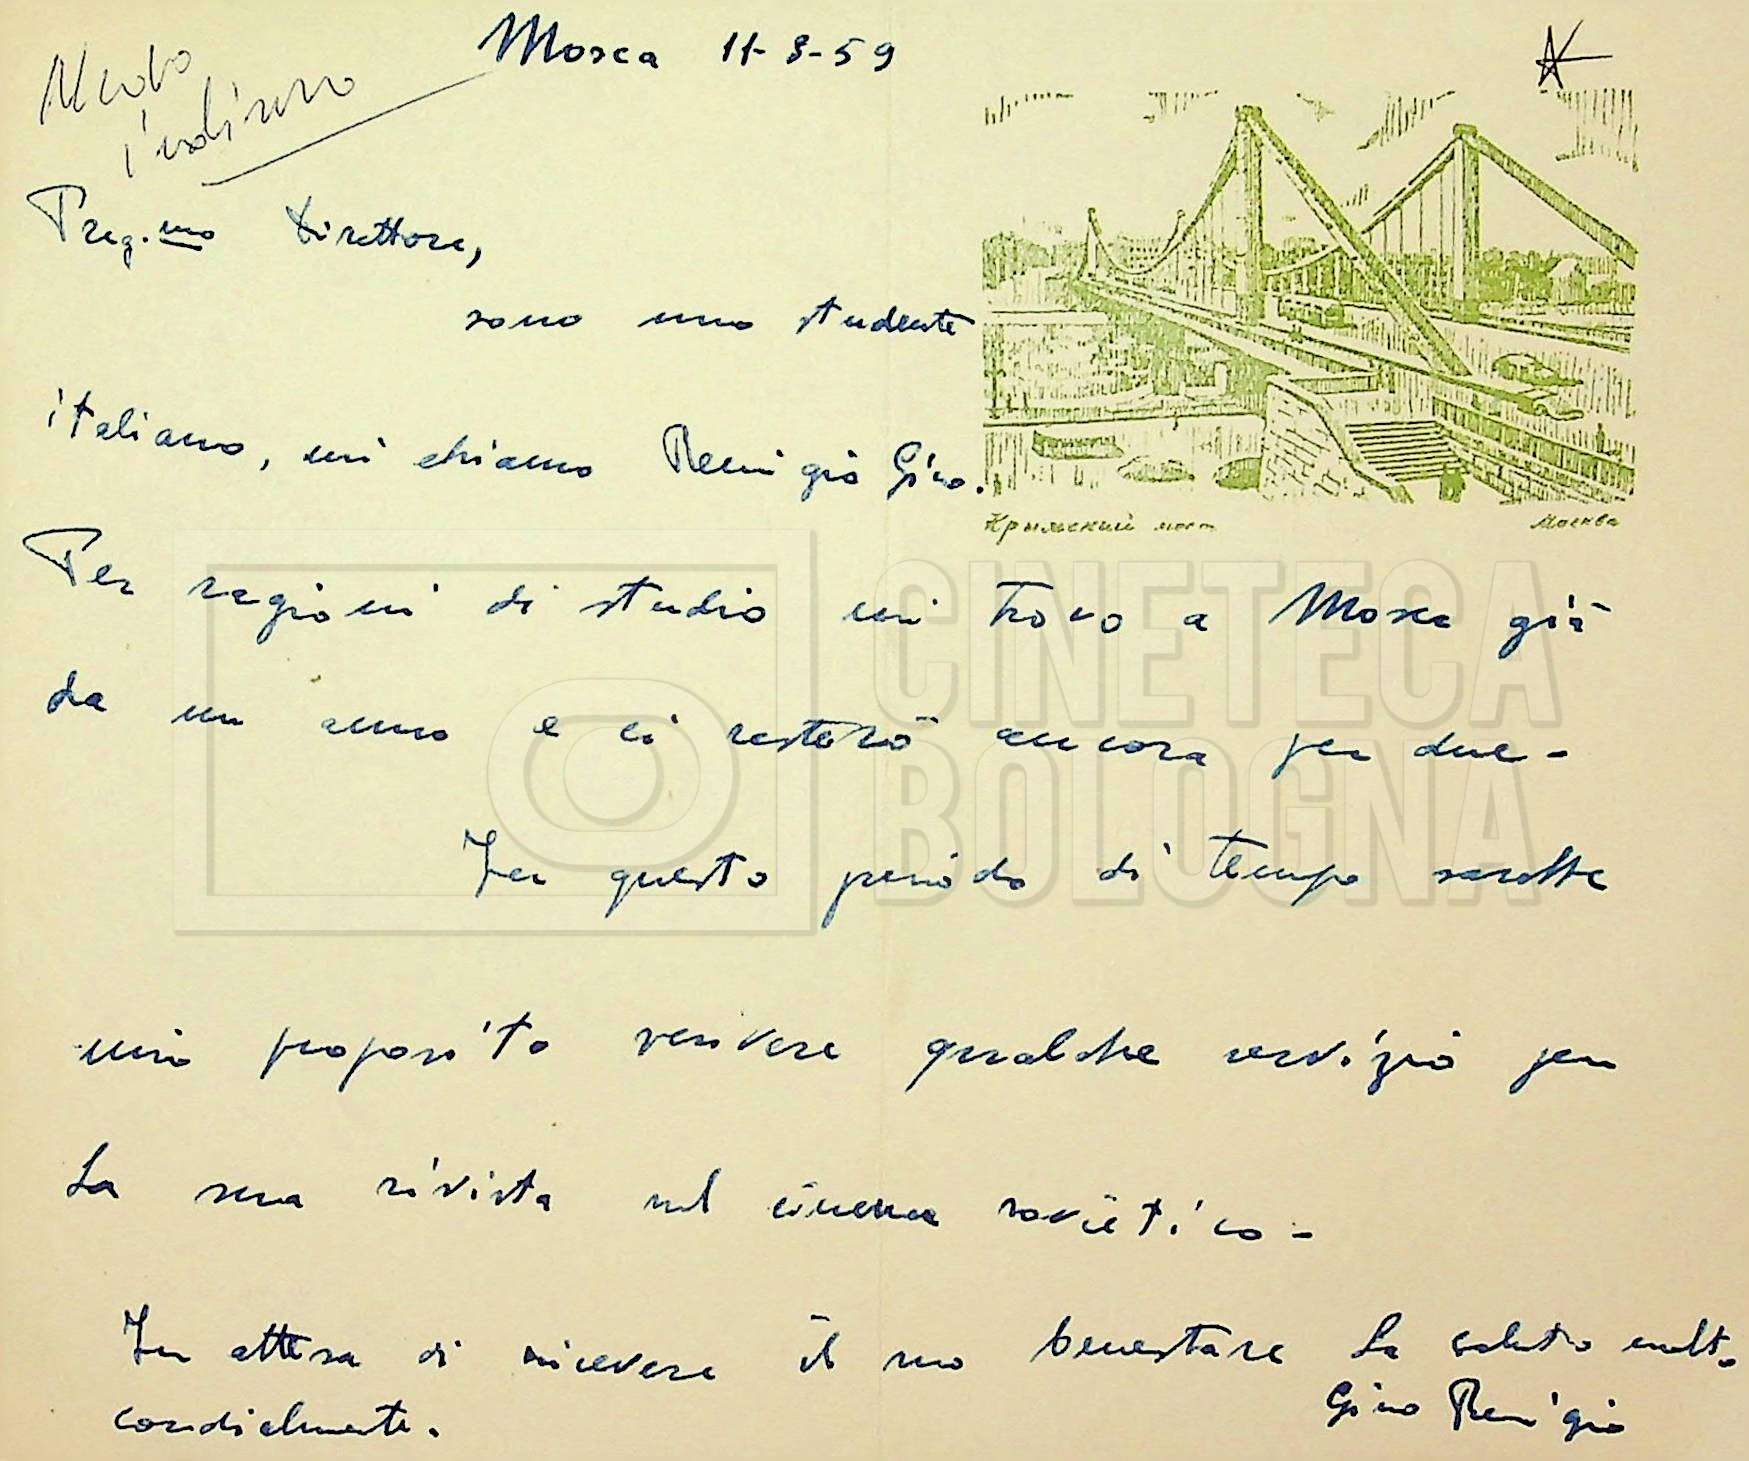 Mosca 11-8-59
Nuovo
indirizzo
Preg.mo Direttore,
sono uno studente
italiano, mi chiamo Remigio Gino.
Крымский мост Москва
Per ragioni di studio mi trovo a Mosca già
da un anno e ci resterò ancora per due-
CINETECA
BOLOGNA
In questo periodo di tempo sarebbe
mio proposito scrivere qualche servizio per
la sua rivista sul cinema sovietico-
In attesa di ricevere il suo benestare la saluto molto
cordialmente.
Gino Remigio